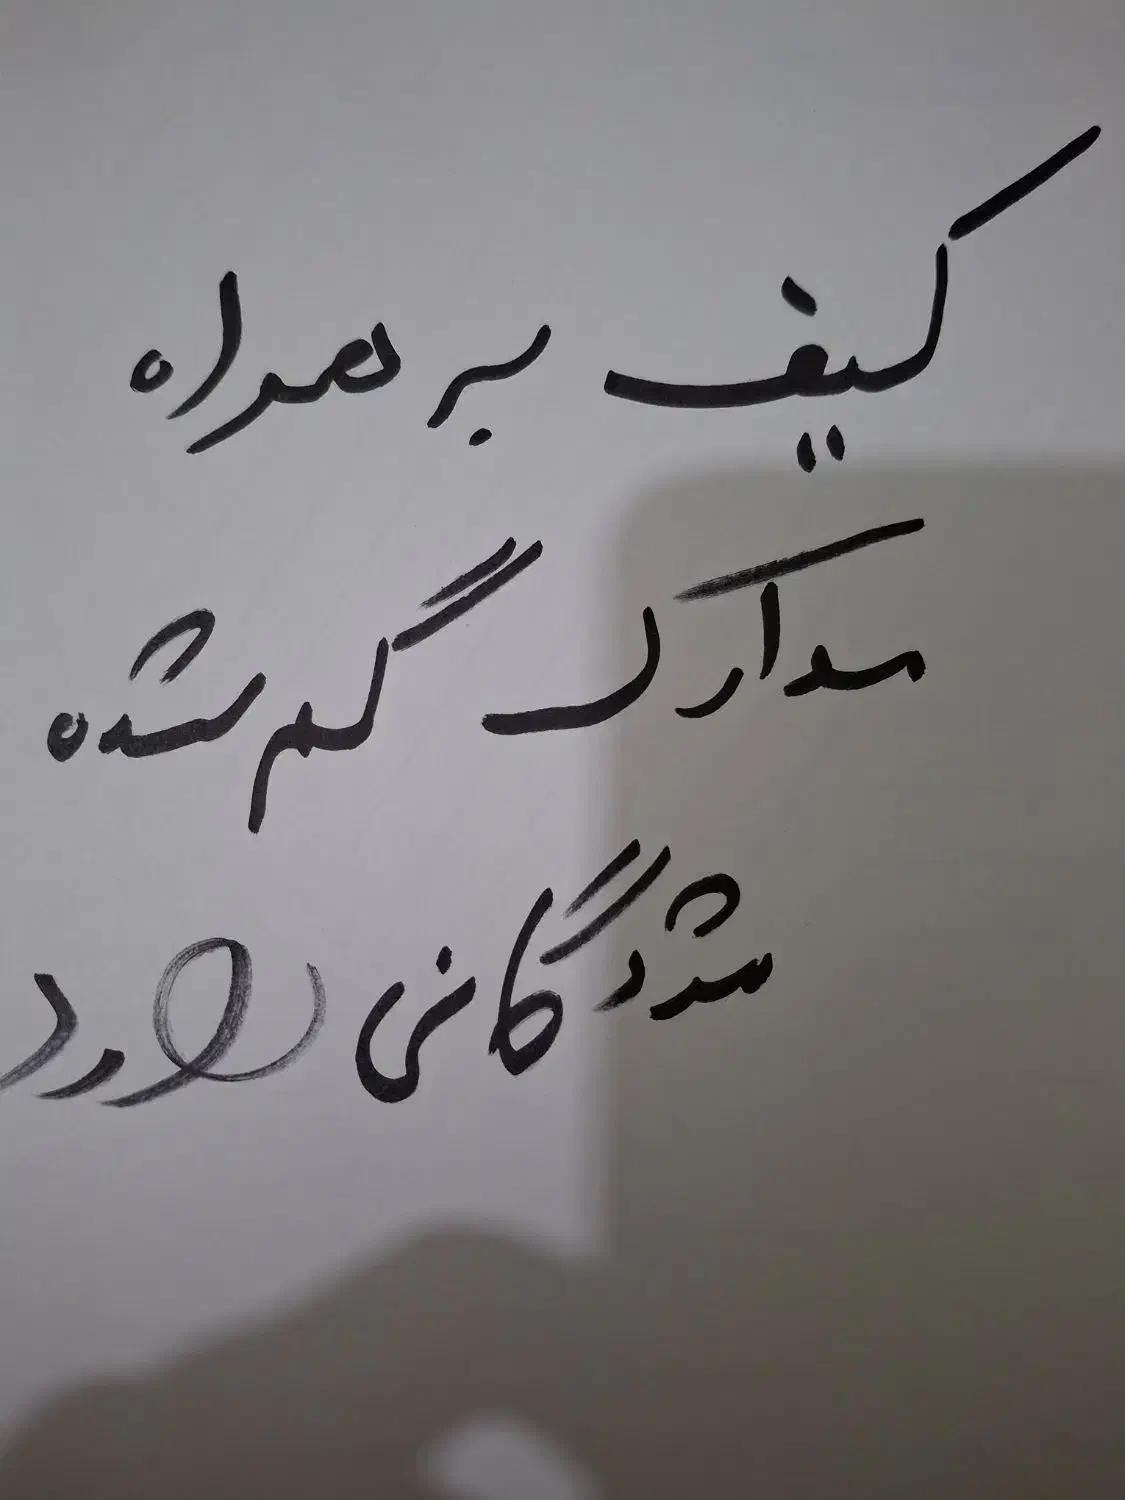 کیف به همراه
مدارک گم شده
مژدگانی دارد